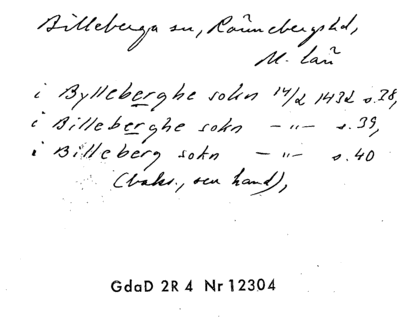 Billeberga sn, Rönnebergs hd,
M. län
i Bylleberghe sokn 14/2 1432 s.38,
i Billeberghe sokn —"— s.39,
i Billeberg sokn —"— s.40
(baks., sen hand),
GdaD 2R4 Nr 12304